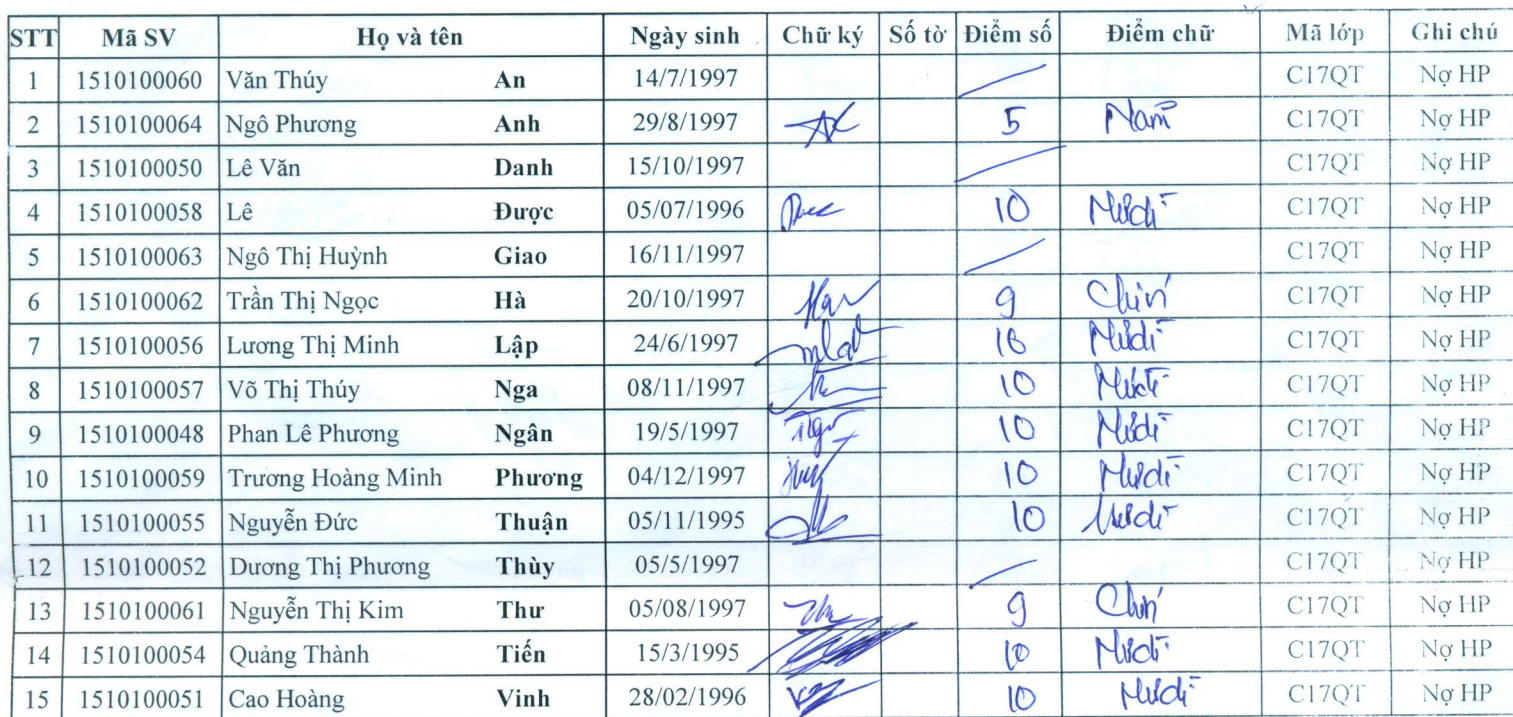 STT Mã SV Họ và tên Ngày sinh Chữ ký Số tờ Điểm số Điểm chữ Mã lớp Ghi chú
1 1510100060 Văn Thúy An 14/7/1997 C17QT Nợ HP
2 1510100064 Ngô Phương Anh 29/8/1997 5 Năm C17QT Nợ HP
3 1510100050 Lê Văn Danh 15/10/1997 C17QT Nợ HP
4 1510100058 Lê Được 05/07/1996 10 Mười C17QT Nợ HP
5 1510100063 Ngô Thị Huỳnh Giao 16/11/1997 C17QT Nợ HP
6 1510100062 Trần Thị Ngọc Hà 20/10/1997 9 Chín C17QT Nợ HP
7 1510100056 Lương Thị Minh Lập 24/6/1997 10 Mười C17QT Nợ HP
8 1510100057 Võ Thị Thúy Nga 08/11/1997 10 Mười C17QT Nợ HP
9 1510100048 Phan Lê Phương Ngân 19/5/1997 10 Mười C17QT Nợ HP
10 1510100059 Trương Hoàng Minh Phương 04/12/1997 10 Mười C17QT Nợ HP
11 1510100055 Nguyễn Đức Thuận 05/11/1995 10 Mười C17QT Nợ HP
12 1510100052 Dương Thị Phương Thùy 05/5/1997 C17QT Nợ HP
13 1510100061 Nguyễn Thị Kim Thư 05/08/1997 9 Chín C17QT Nợ HP
14 1510100054 Quảng Thành Tiến 15/3/1995 10 Mười C17QT Nợ HP
15 1510100051 Cao Hoàng Vinh 28/02/1996 10 Mười C17QT Nợ HP